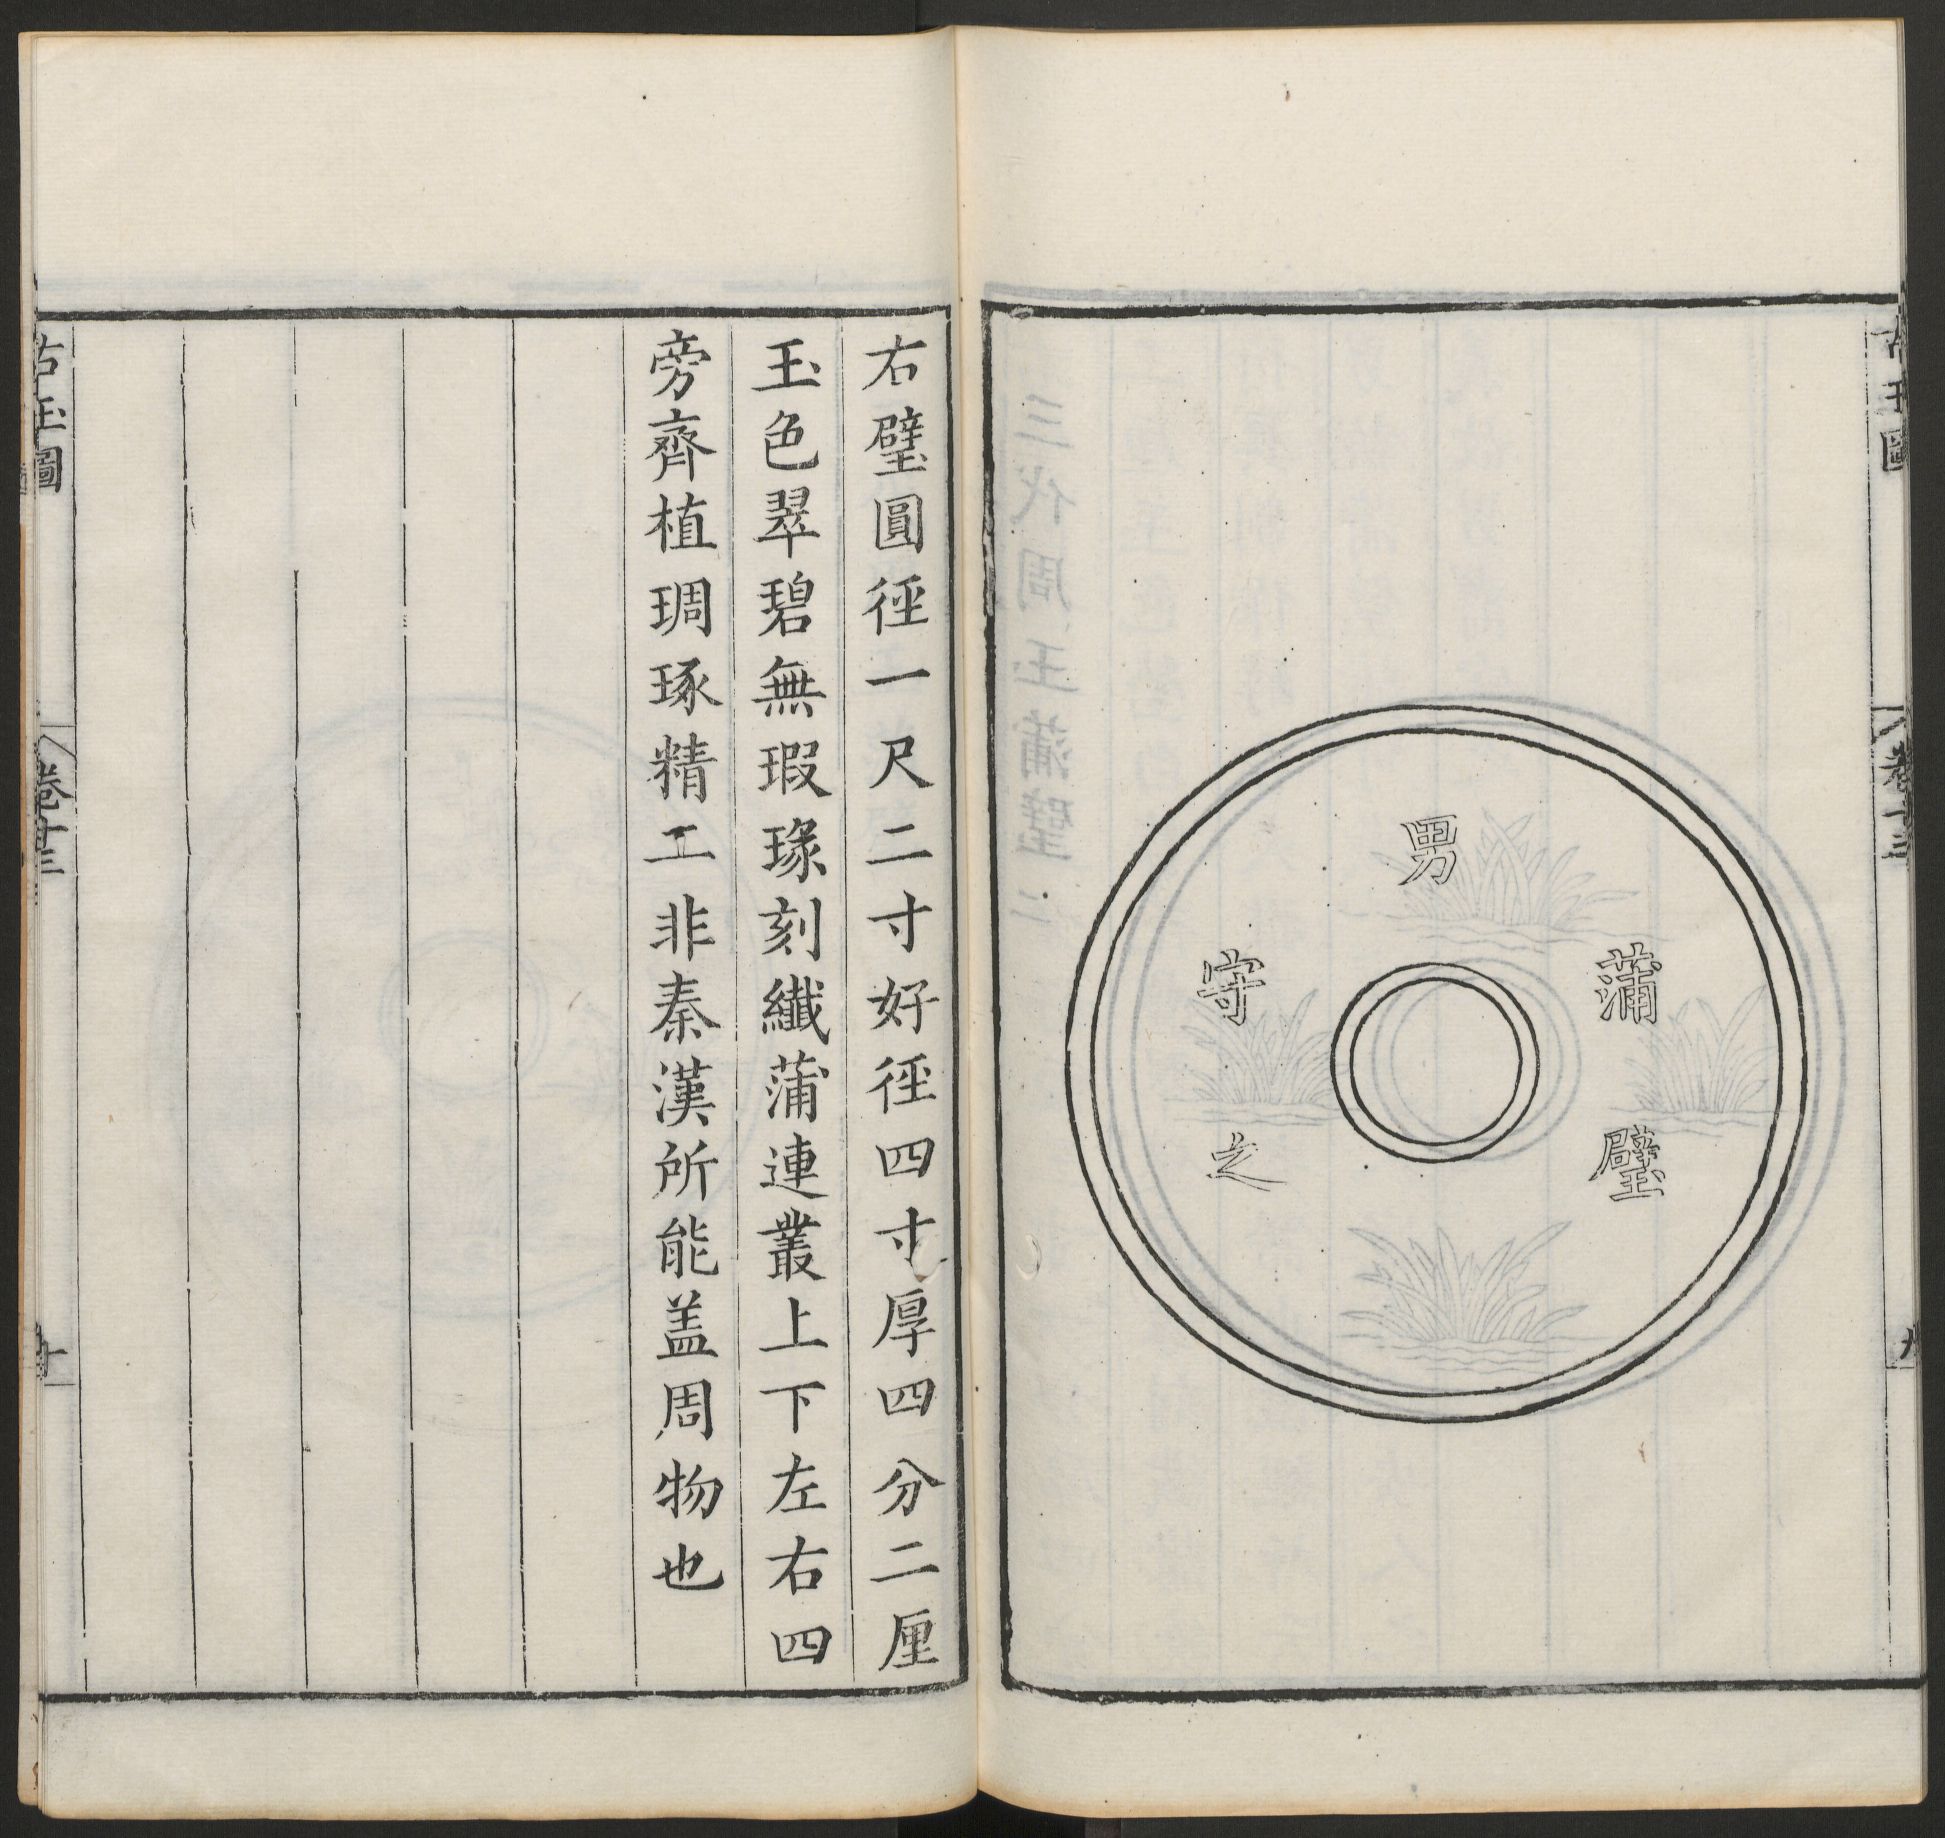 古玉圖
九
蒲璧
男
守之
右璧圓徑一尺二寸好徑四寸厚四分二厘
玉色翠碧無瑕瑑刻纖蒲連叢上下左右四
旁齊植琱琢精工非秦漢所能盖周物也
古玉圖
十